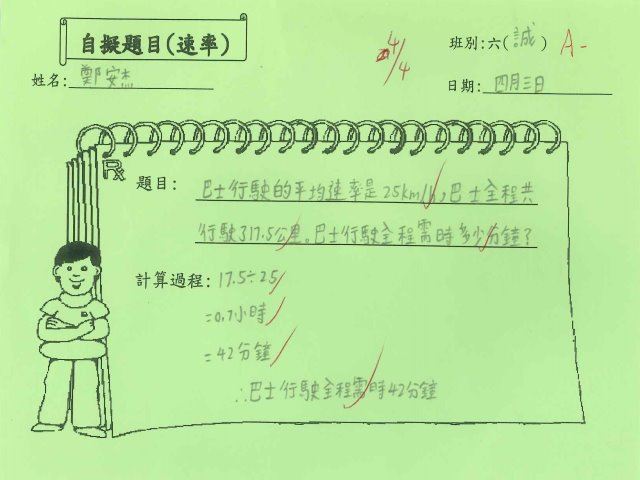 自擬題目(速率)
4/4
班別:六(誠) A-
姓名:鄭安杰
日期:四月三日
題目:巴士行駛的平均速率是25km/h,巴士全程共
行駛了17.5公里。巴士行駛全程需時多少分鐘?
計算過程:17.5÷25
=0.7小時
=42分鐘
∴巴士行駛全程需時42分鐘